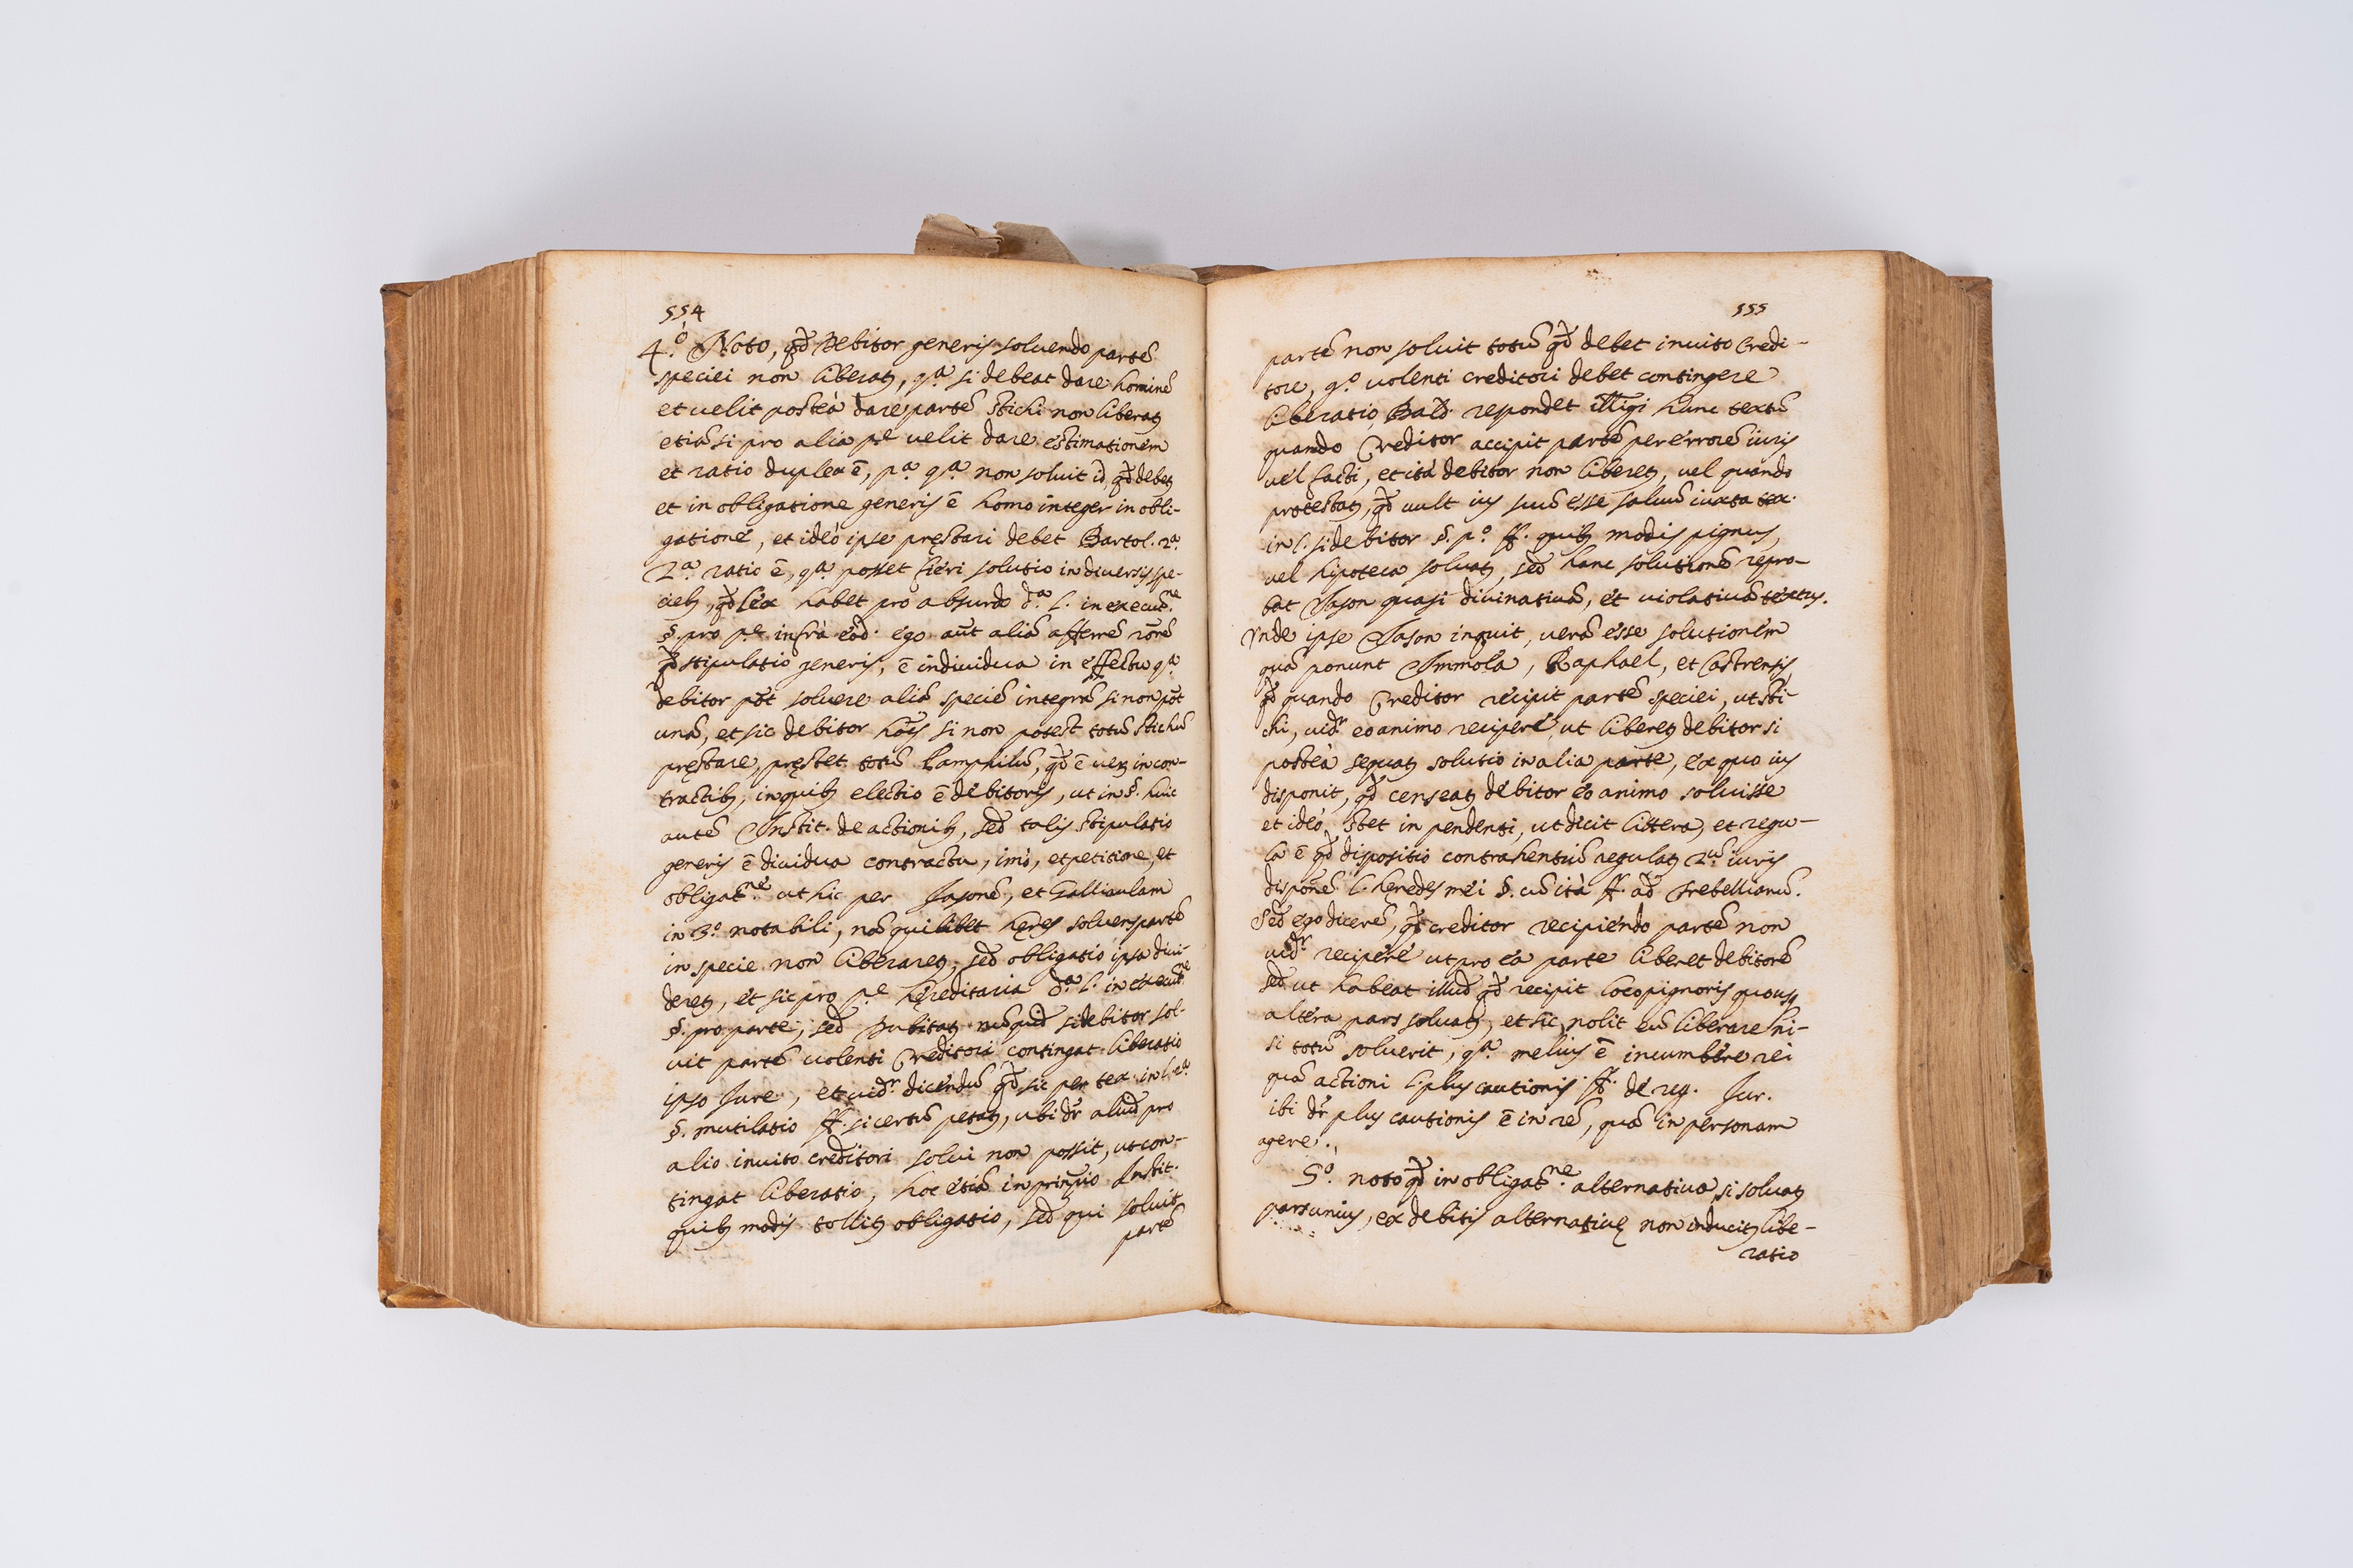 554
4.º Noto, qđ Debitor generis soluendo partẽ
speciei non liberatꝫ, qª si debeat dare hominẽ
et velit posteà dare partẽ stichi non liberatꝫ
etiã si pro alia pᵉ velit dare estimationem
et ratio duplex ẽ, pª qª non soluit id, qđ debetꝫ
et in obligatione generis ẽ homo integer in obli-
gatione, et ideò ipse pręstari debet Bartol. 2ª.
2ª. ratio ẽ, qª. posset fieri solutio in diuersis spe-
ciebꝫ, qđ lex habet pro absurdo dª. l. in execũ.ⁿᵉ
§. pro pᵉ infrà eod. ego aũt aliã afferrẽ rõnẽ
qđ stipulatio generis, ẽ indiuidua in effectu qª
debitor põt soluere aliã speciẽ integrã si non põt
unã, et sic debitor hõis si non potest totũ stichũ
pręstare, pręstet totũ Pamphilũ, qđ ẽ uerꝫ in con-
tractibꝫ, in quibꝫ electio ẽ debitoris, ut in §. huic
autẽ Instit. de actionibꝫ, sed talis stipulatio
generis ẽ diuidua contractu, imò, et petitione, et
obligat.ⁿᵉ ut hic per Jasonẽ, et Galliaulam
in 3.º notabili, nã quilibet hęres soluens partẽ
in specie non liberaretꝫ, sed obligatio ipsa diui-
deretꝫ, et sic pro pᵉ hęreditaria dª. l. in execut.ⁿᵉ
§. pro parte, sed Dubitatꝫ nũquid si debitor sol-
uit partẽ uolenti Creditori contingat liberatio
ipso Jure, et uidʳ dicendũ qđ sic per tex. in l. 2ª.
§. mutilatio ff. si certũ petatꝫ, ubi dʳ aliud pro
alio inuito creditori solui non possit, ut con-
tingat liberatio, hoc etiã in principio Instit.
quibꝫ modis tollitꝫ obligatio, sed qui soluit
partẽ
555
partẽ non soluit totũ qđ debet inuito Credi-
tore, qº uolenti creditori debet contingere
liberatio, Bald. respondet illigi hunc textũ
quando Creditor accipit partẽ per errorẽ iuris
uel facti, et ità debitor non liberetꝫ, uel quando
protestatꝫ, qđ uult ius suũ esse saluũ iuxta tex.
in l. si debitor §. pº. ff. quibꝫ modis pignus,
uel hipoteca soluatꝫ, sed hanc solutionẽ repro-
bat Jason quasi diuinatiuã, et uiolatiuã textus.
Vnde ipse Jason inquit, verã esse solutionem
quã ponunt Immola, Raphael, et Castrensis,
qđ quando Creditor recipit partẽ speciei, ut sti-
chi, uidʳ eo animo recipere, ut liberetꝫ debitor si
posteà sequatꝫ solutio in alia parte, ex quo ius
disponit, qđ censeatꝫ debitor eo animo soluisse
et ideò stet in pendenti, ut dicit littera, et regu-
la ẽ qđ dispositio contrahentiũ regulatꝫ 2ũ. iuris
disponẽ l. hęredes mei §. cũ ità ff. ad Trebellianũ.
Sed ego dicerẽ, qđ creditor recipiendo partẽ non
uidʳ recipere ut pro ea parte liberet debitorẽ
sed ut habeat illud qđ recipit loco pignoris quousqꝫ
altera pars soluatꝫ, et sic nolit eũ liberare ni-
si totũ soluerit, qª. melius ẽ incumbere rei
quã actioni l. plus cautionis ff. de reg. Jur.
ibi dʳ plus cautionis ẽ in rẽ, quã in personam
agere.
5º. noto qđ in obligat.ⁿᵉ alternatiua, si soluatꝫ
pars unius, ex debitis alternatiuę non inducitꝫ libe-
ratio